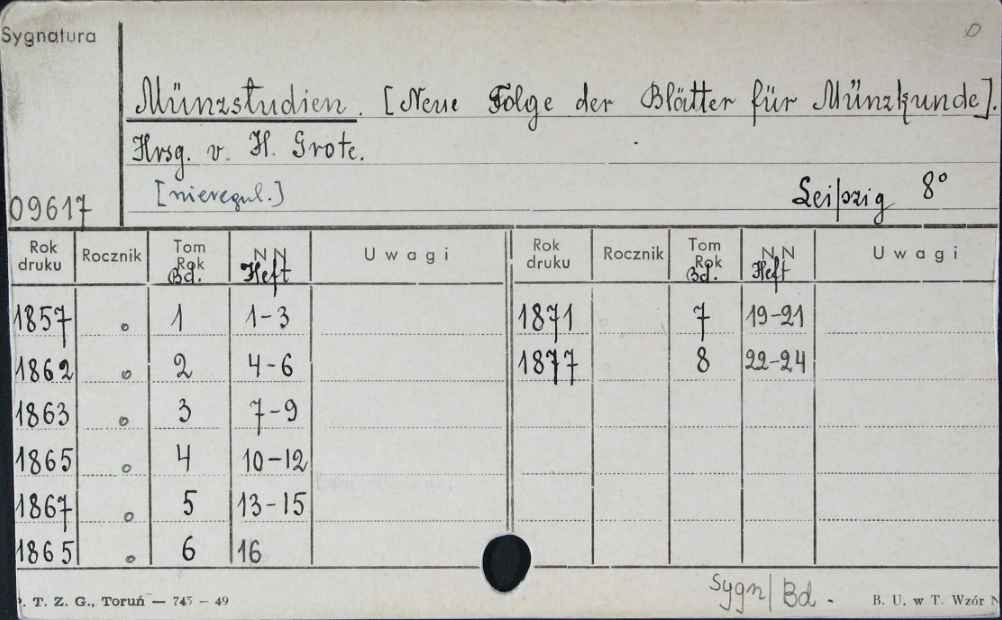 Sygnatura
Münzstudien. [Neue Folge der Blätter für Münzkunde].
Hrsg. v. H. Grote.
[nieregul.]
Leipzig 8°
09617
Rok druku Rocznik Tom Rok Bd. NN Heft Uwagi Rok druku Rocznik Tom Rok Bd. NN Heft Uwagi
1857 1 1-3 1871 7 19-21
1862 2 4-6 1877 8 22-24
1863 3 7-9
1865 4 10-12
1867 5 13-15
1865 6 16
Sygn/Bd.
. T. Z. G., Toruń — 745 — 49
B. U. w T. Wzór N